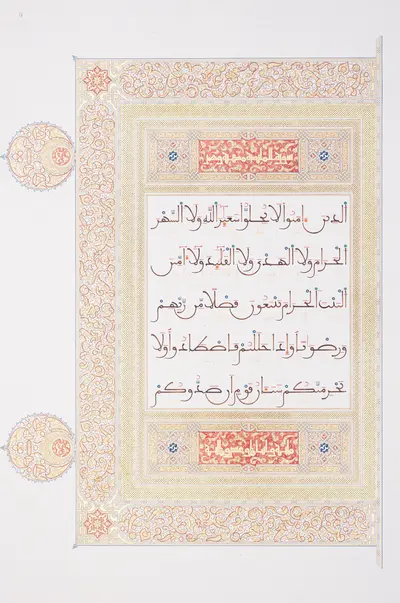 الذين ءامنوا لا تحلوا شعير الله ولا الشهر
الحرام ولا الهدى ولا القليد ولا ءامين
البيت الحرام يبتغون فضلا من ربهم
ورضونا وإذا حللتم فاصطادوا ولا
يجرمنكم شنان قوم أن صدوكم